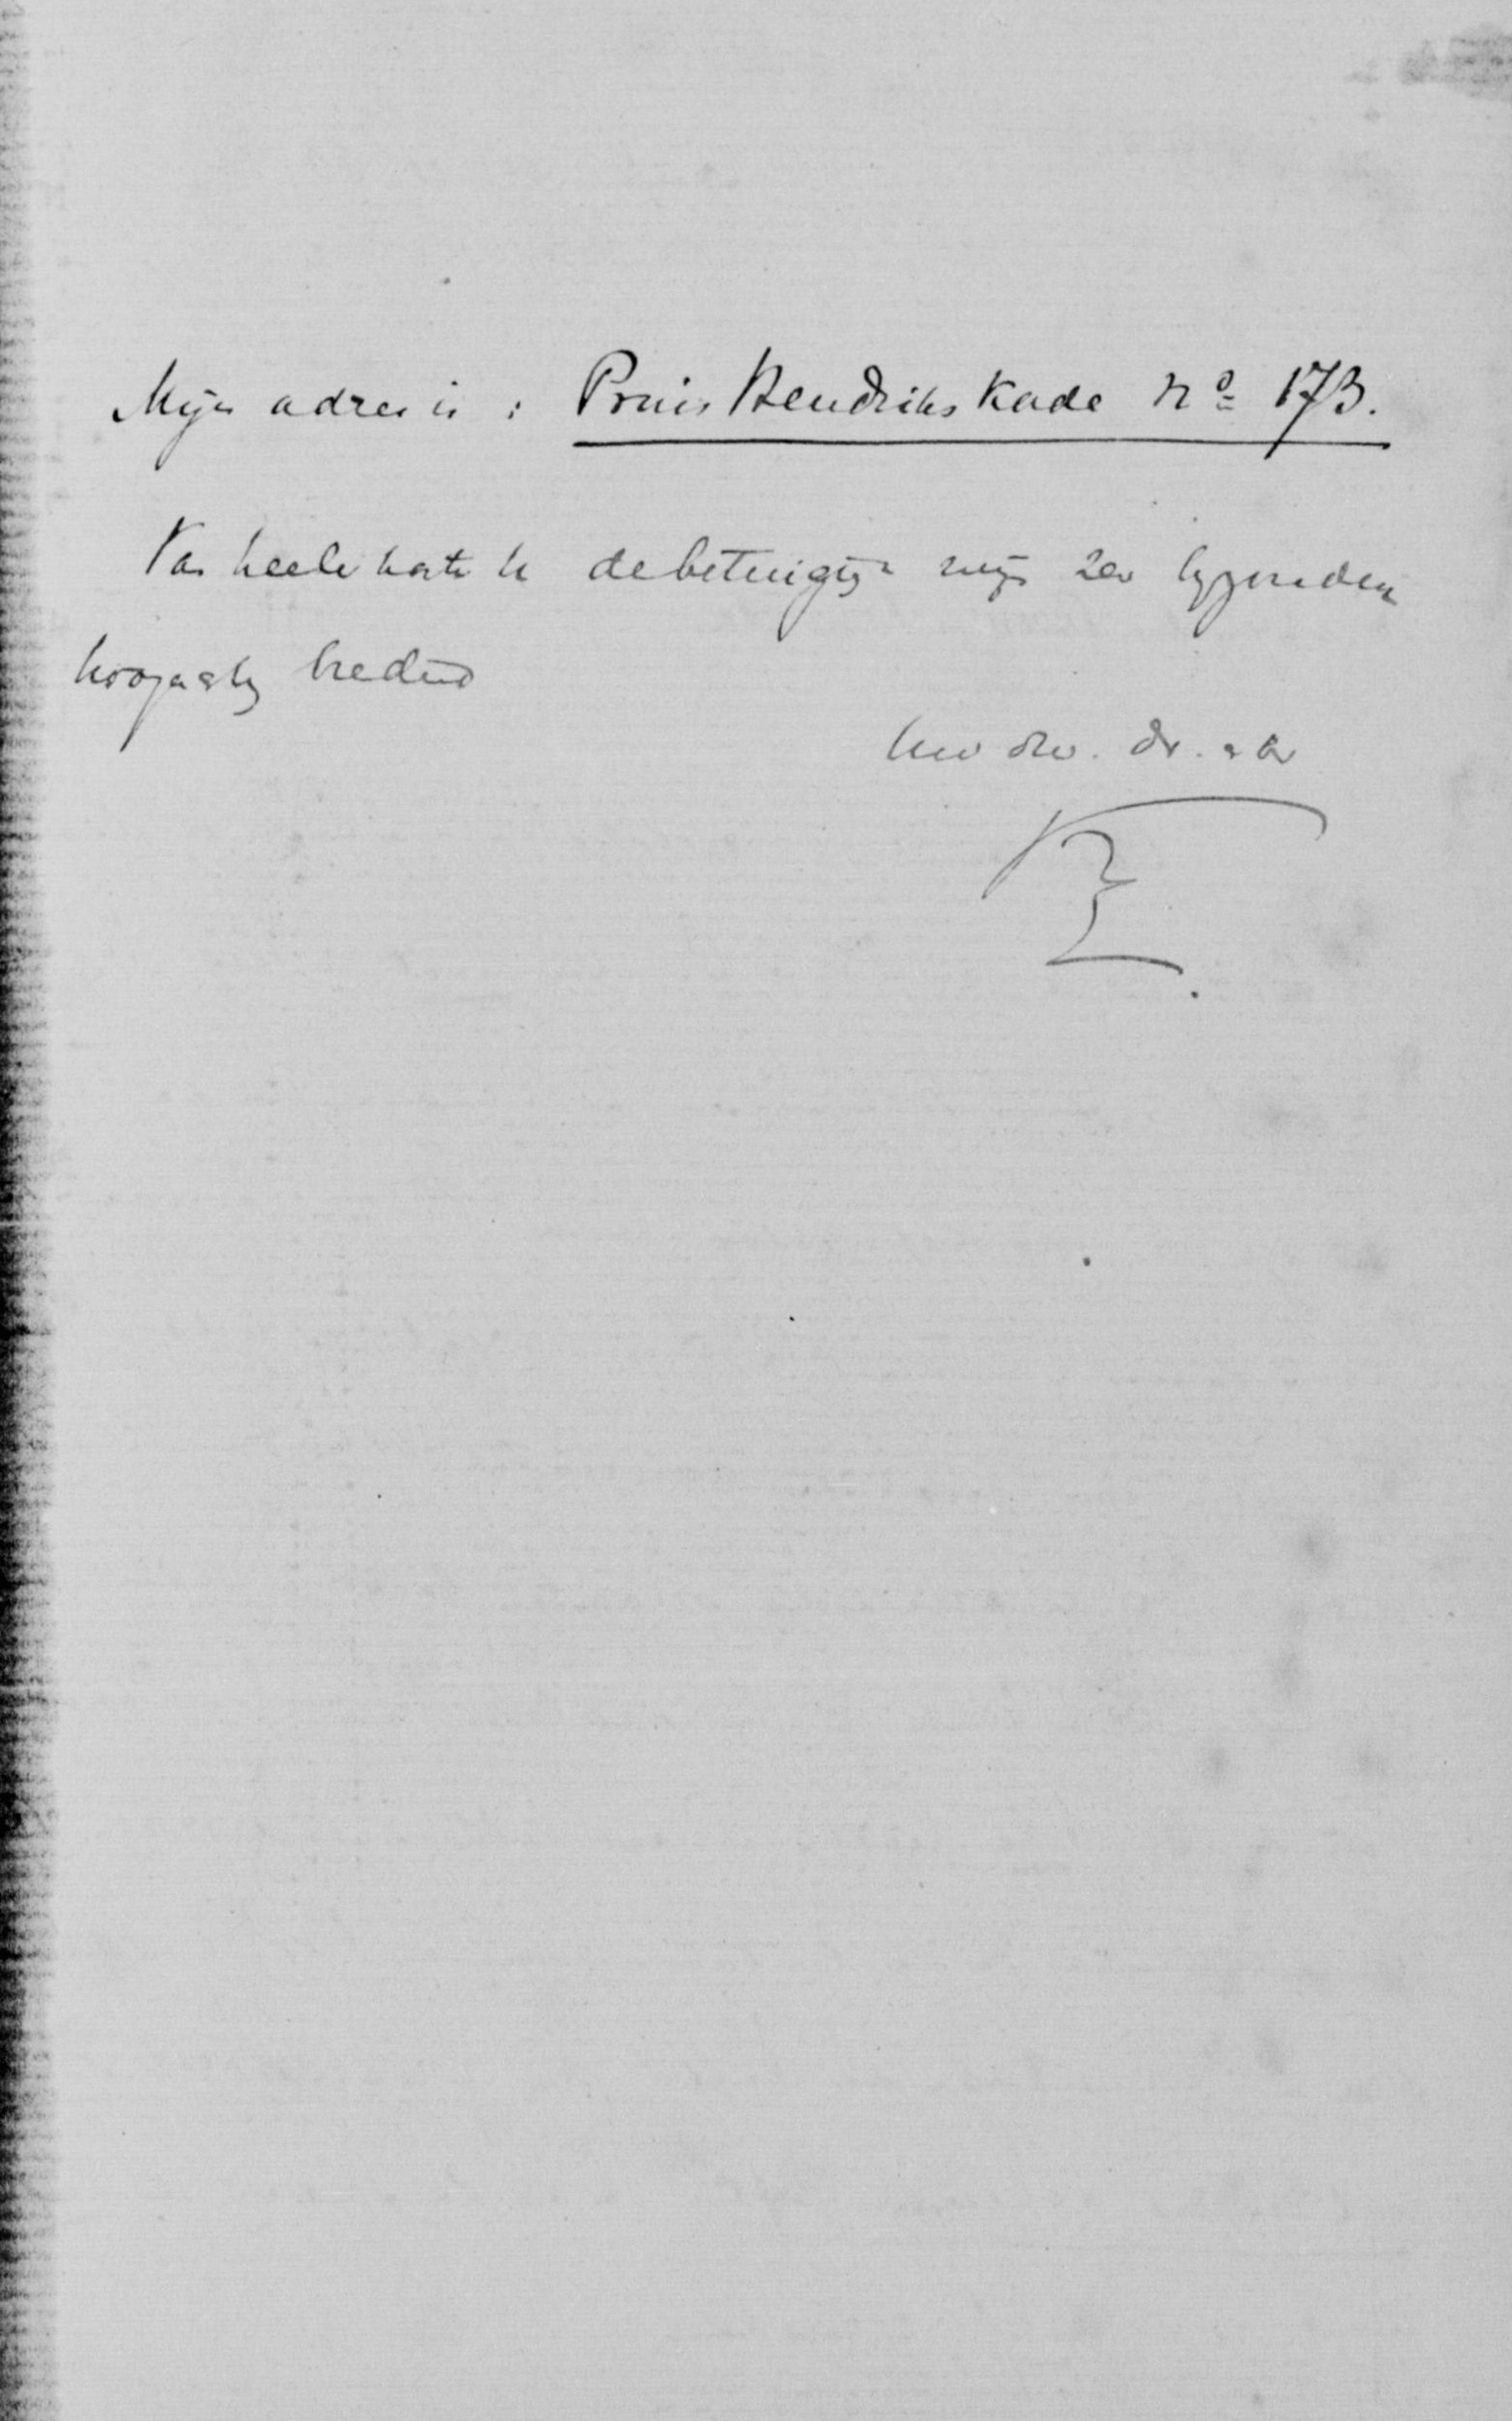 Mijn adres is : Prins Hendriks Kade No 173.
Van heeler harte de betuiging mijner zeer byzondere
hoogachting biedend
Uw dw. dr. en